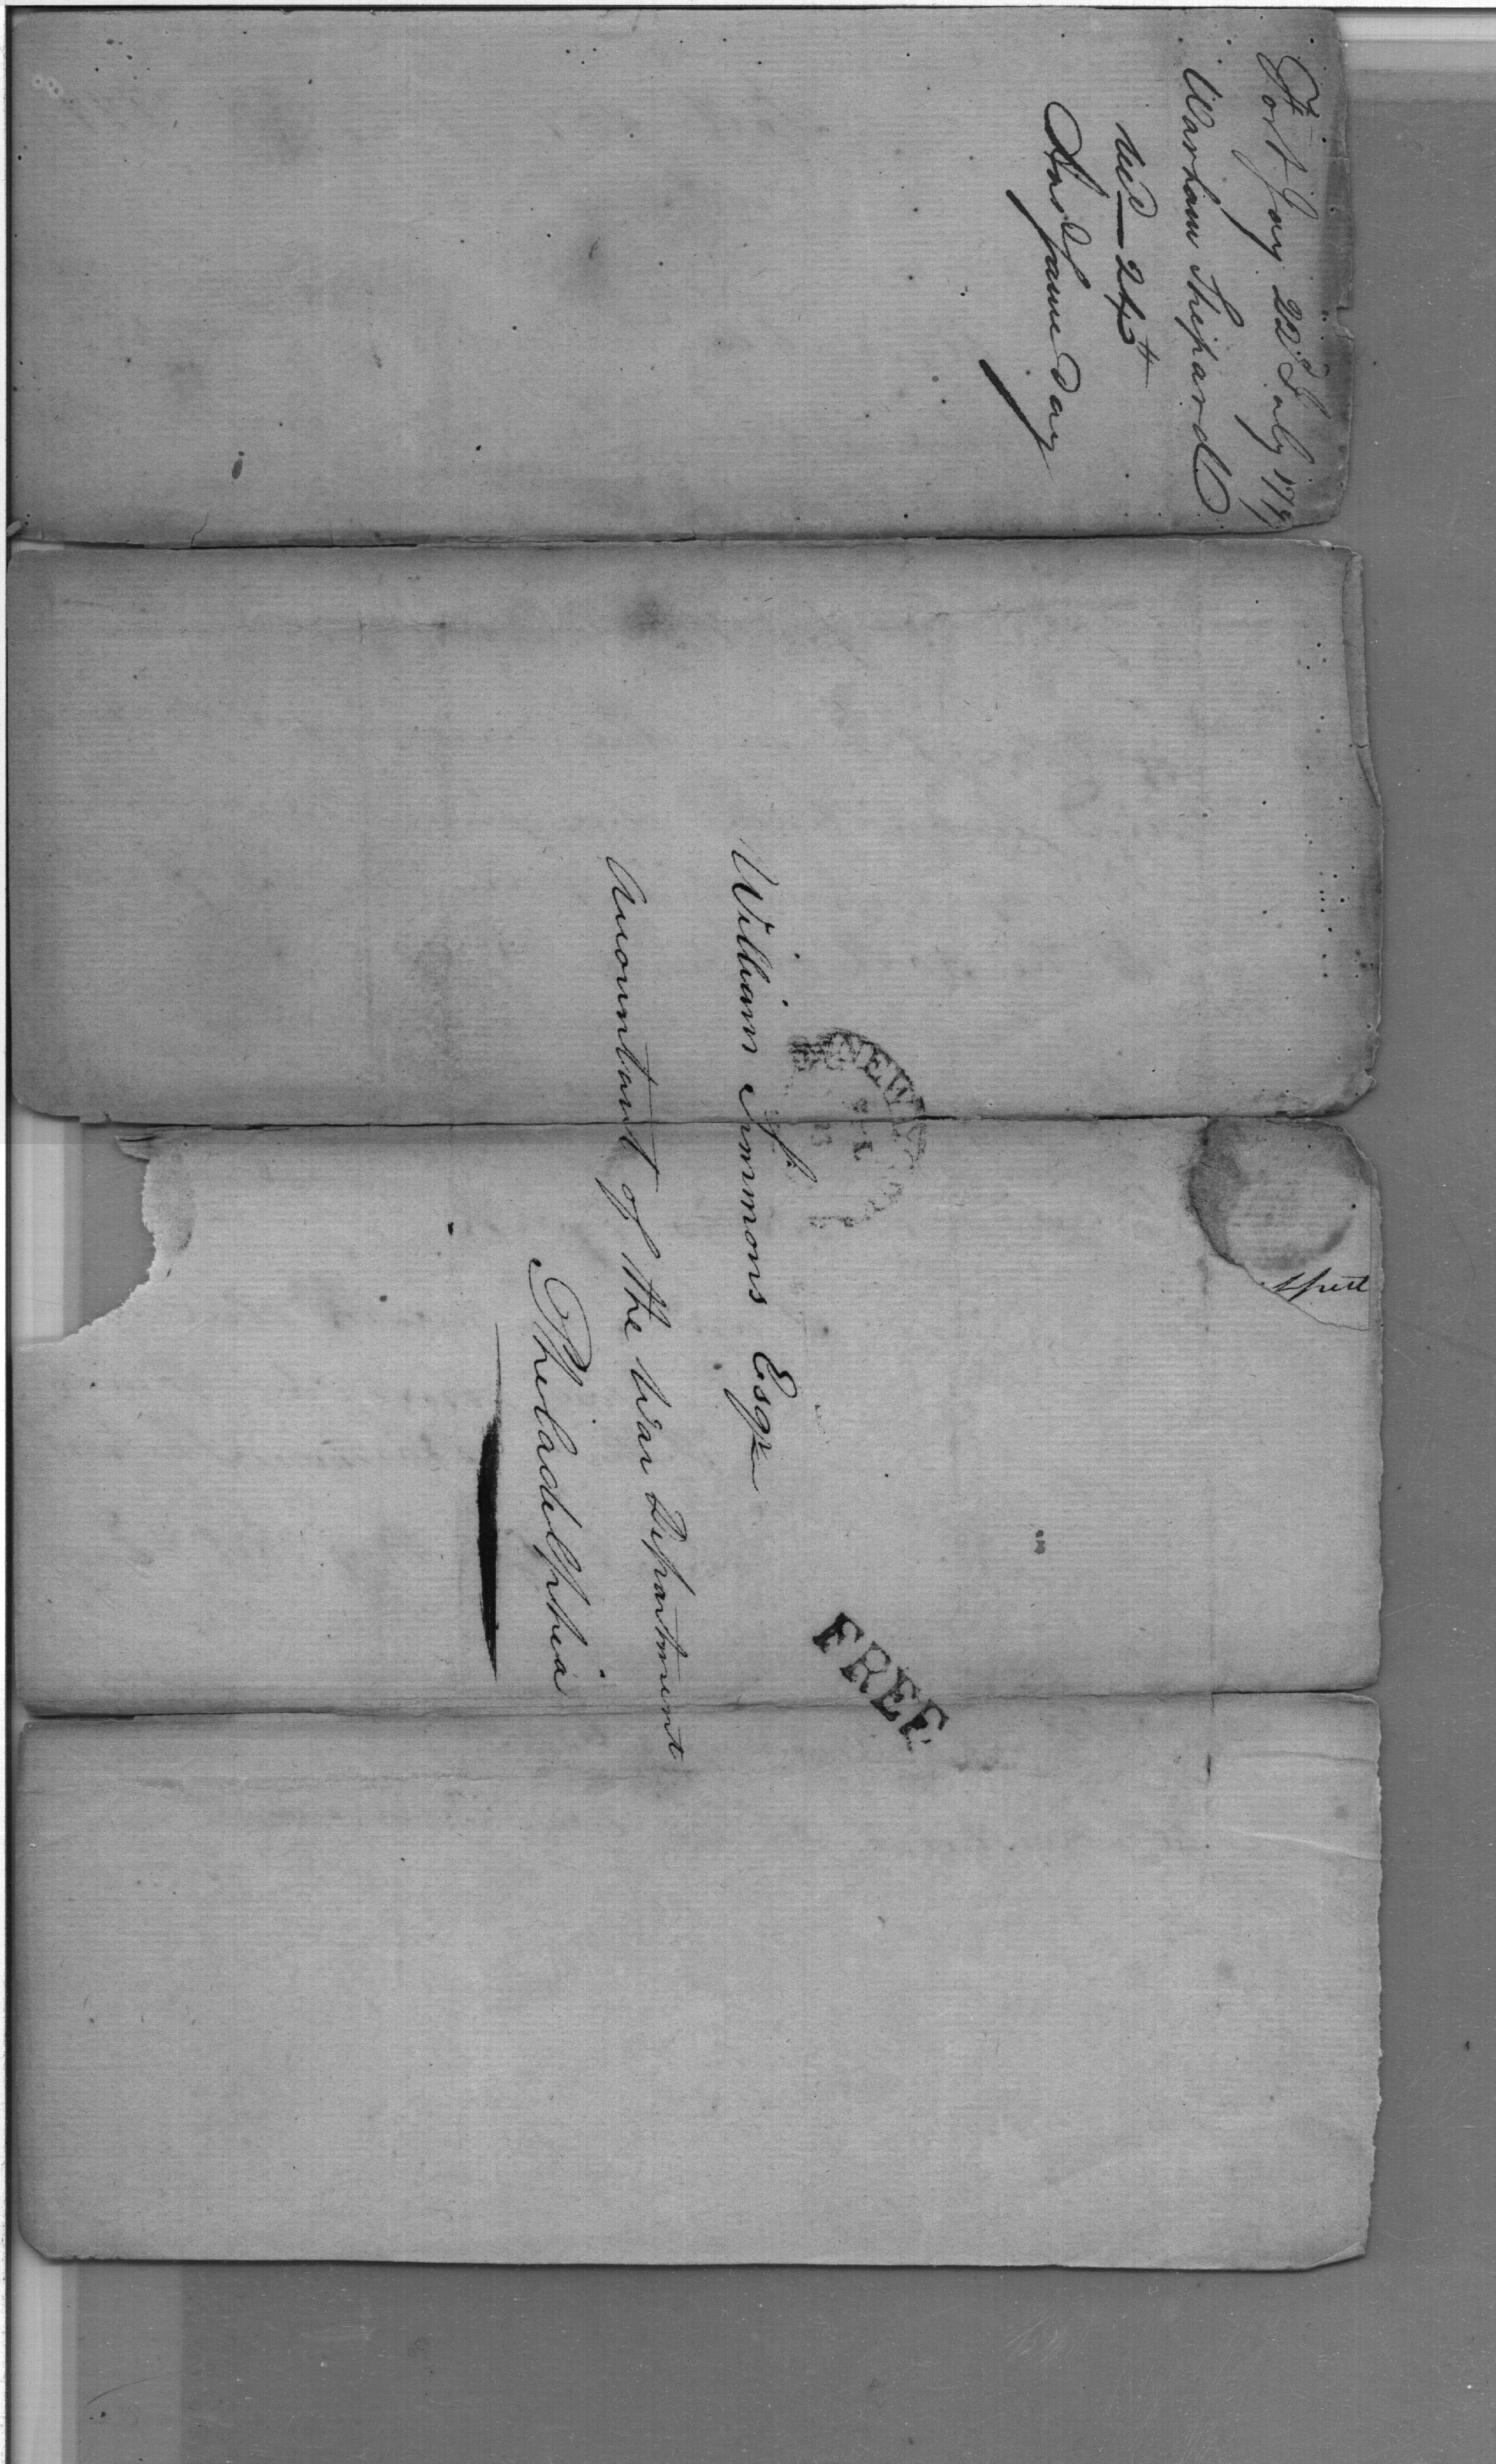 Fort Jay 22d July 179
Warham Shepard
recd 24th
Ansd same Day
NEW
FREE
William Simmons Esqr
Accountant of the War Department
Philadelphia